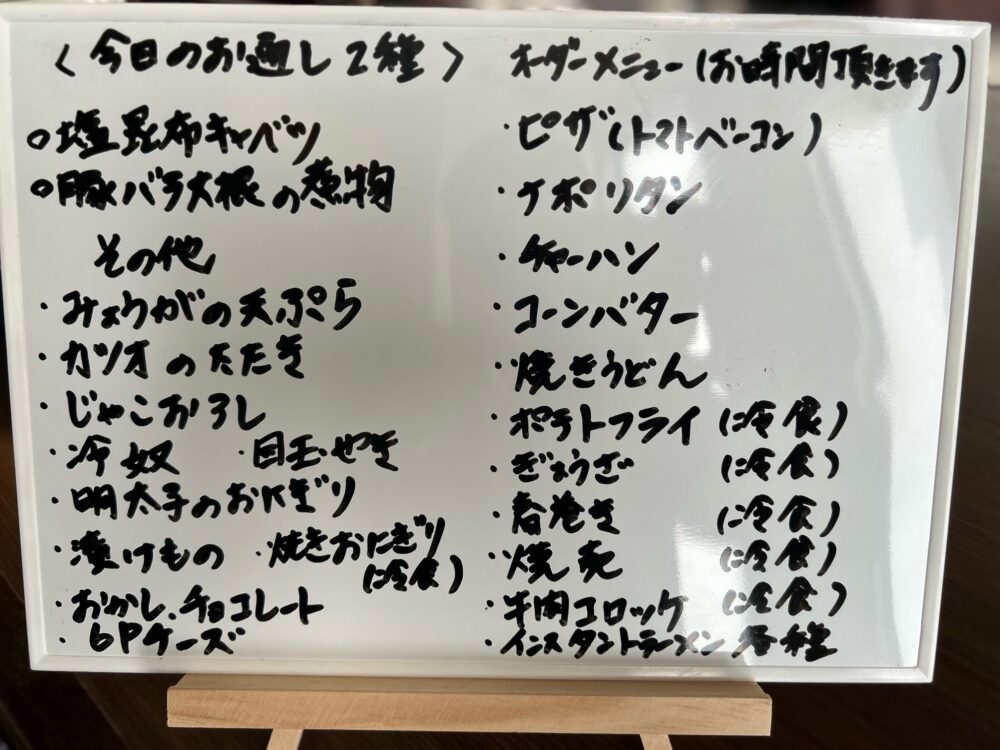 〈今日のお通し2種〉
○塩昆布キャベツ
○豚バラ大根の煮物
その他
・みょうがの天ぷら
・カツオのたたき
・じゃこおろし
・冷奴 ・目玉やき
・明太子のおにぎり
・漬けもの ・焼きおにぎり
(冷食)
・おかし.チョコレート
・6Pチーズ
オーダーメニュー(お時間頂きます)
・ピザ(トマトベーコン)
・ナポリタン
・チャーハン
・コーンバター
・焼きうどん
・ポテトフライ (冷食)
・ぎょうざ (冷食)
・春巻き (冷食)
・焼売 (冷食)
・牛肉コロッケ (冷食)
・インスタントラーメン各種